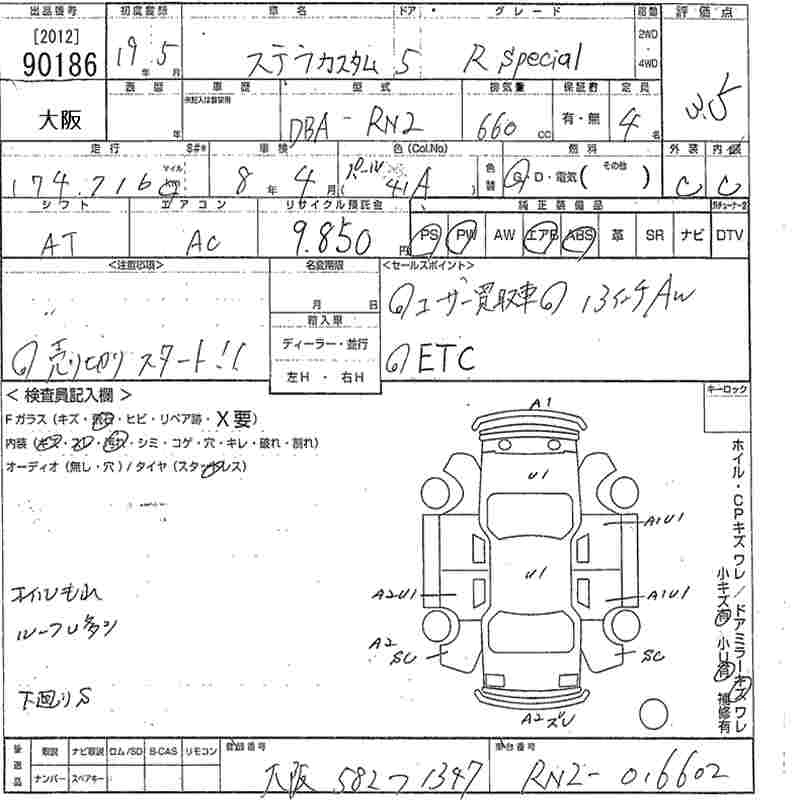 出品番号 初度登録 車名 ドア グレード 駆動 評価点
[2012]
90186
19年 5月 ステラカスタム 5 R Special 2WD・4WD 3.5
大阪
車歴 型式 排気量 保証書 定員
※記入は貸禁用
年 DBA-RN2 660cc 有・無 4名
走行 S#* 車検 色(Col.No) 色替 燃料 外装 内装
174,716 マイル km 8年 4月 パール 41A G・D・電気(その他) C C
シフト エアコン リサイクル預託金 純正装備品
AT AC 9.850円 PS PW AW エアB ABS 革 SR ナビ DTV
<注意事項> 名変期限 <セールスポイント>
月 日
輸入車
ディーラー・並行
左H・右H
売り切り スタート!!
ユーザー買取車 13インチAW
ETC
<検査員記入欄> キーロック
Fガラス(キズ・飛石・ヒビ・リペア跡・X要)
内装(キズ・スレ・汚れ・シミ・コゲ・穴・キレ・破れ・割れ)
オーディオ(無し・穴)/タイヤ(スタッドレス)
オイルもれ
ルーフU多
下回りS
A1
U1
A1U1
U1
A2U1
A1U1
A2
SC
SC
A2ズレ
ホイル・CPキズ ワレ/ドアミラーキズ ワレ
小キズ有 小U有 補修有
後送品 取説 ナビ取説 ロム/SD B-CAS リモコン 登録番号 車台番号
ナンバー スペアキー 大阪 582 フ 1347 RN2-016602